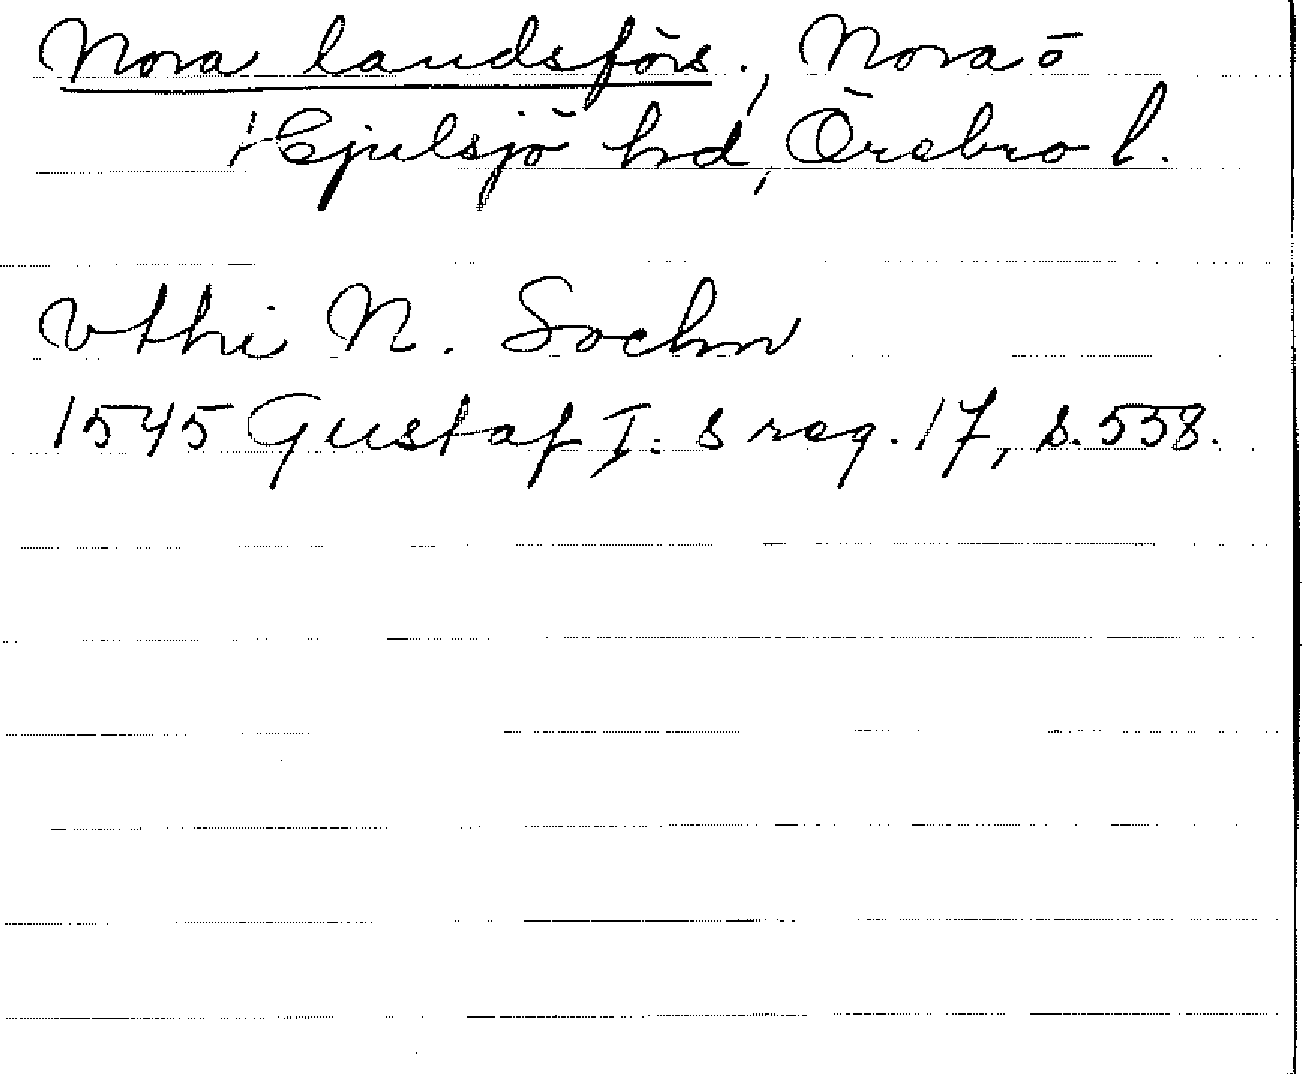 Nora landsförs., Nora o
Hjulsjö hd, Örebro l.
vthi N. Sochn
1545 Gustaf I:s reg. 17, s. 558.